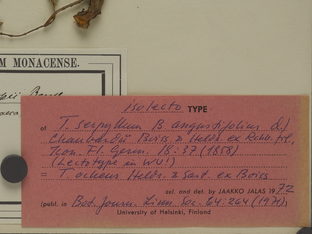 M MONACENSE.
Isolecto TYPE
of T. serpyllum B angustifolium d)
Chaubardii Boiss. & Heldr. ex Rchb. fil.,
Icon. Fl. Germ. 18:37 (1858)
(Lectotype in WU!)
= T. ocheus Heldr. & Sart. ex Boiss.
sel. and det. by JAAKKO JALAS 1972
(publ. in Bot. Journ. Linn. Soc. 64:264 (1971))
University of Helsinki, Finland